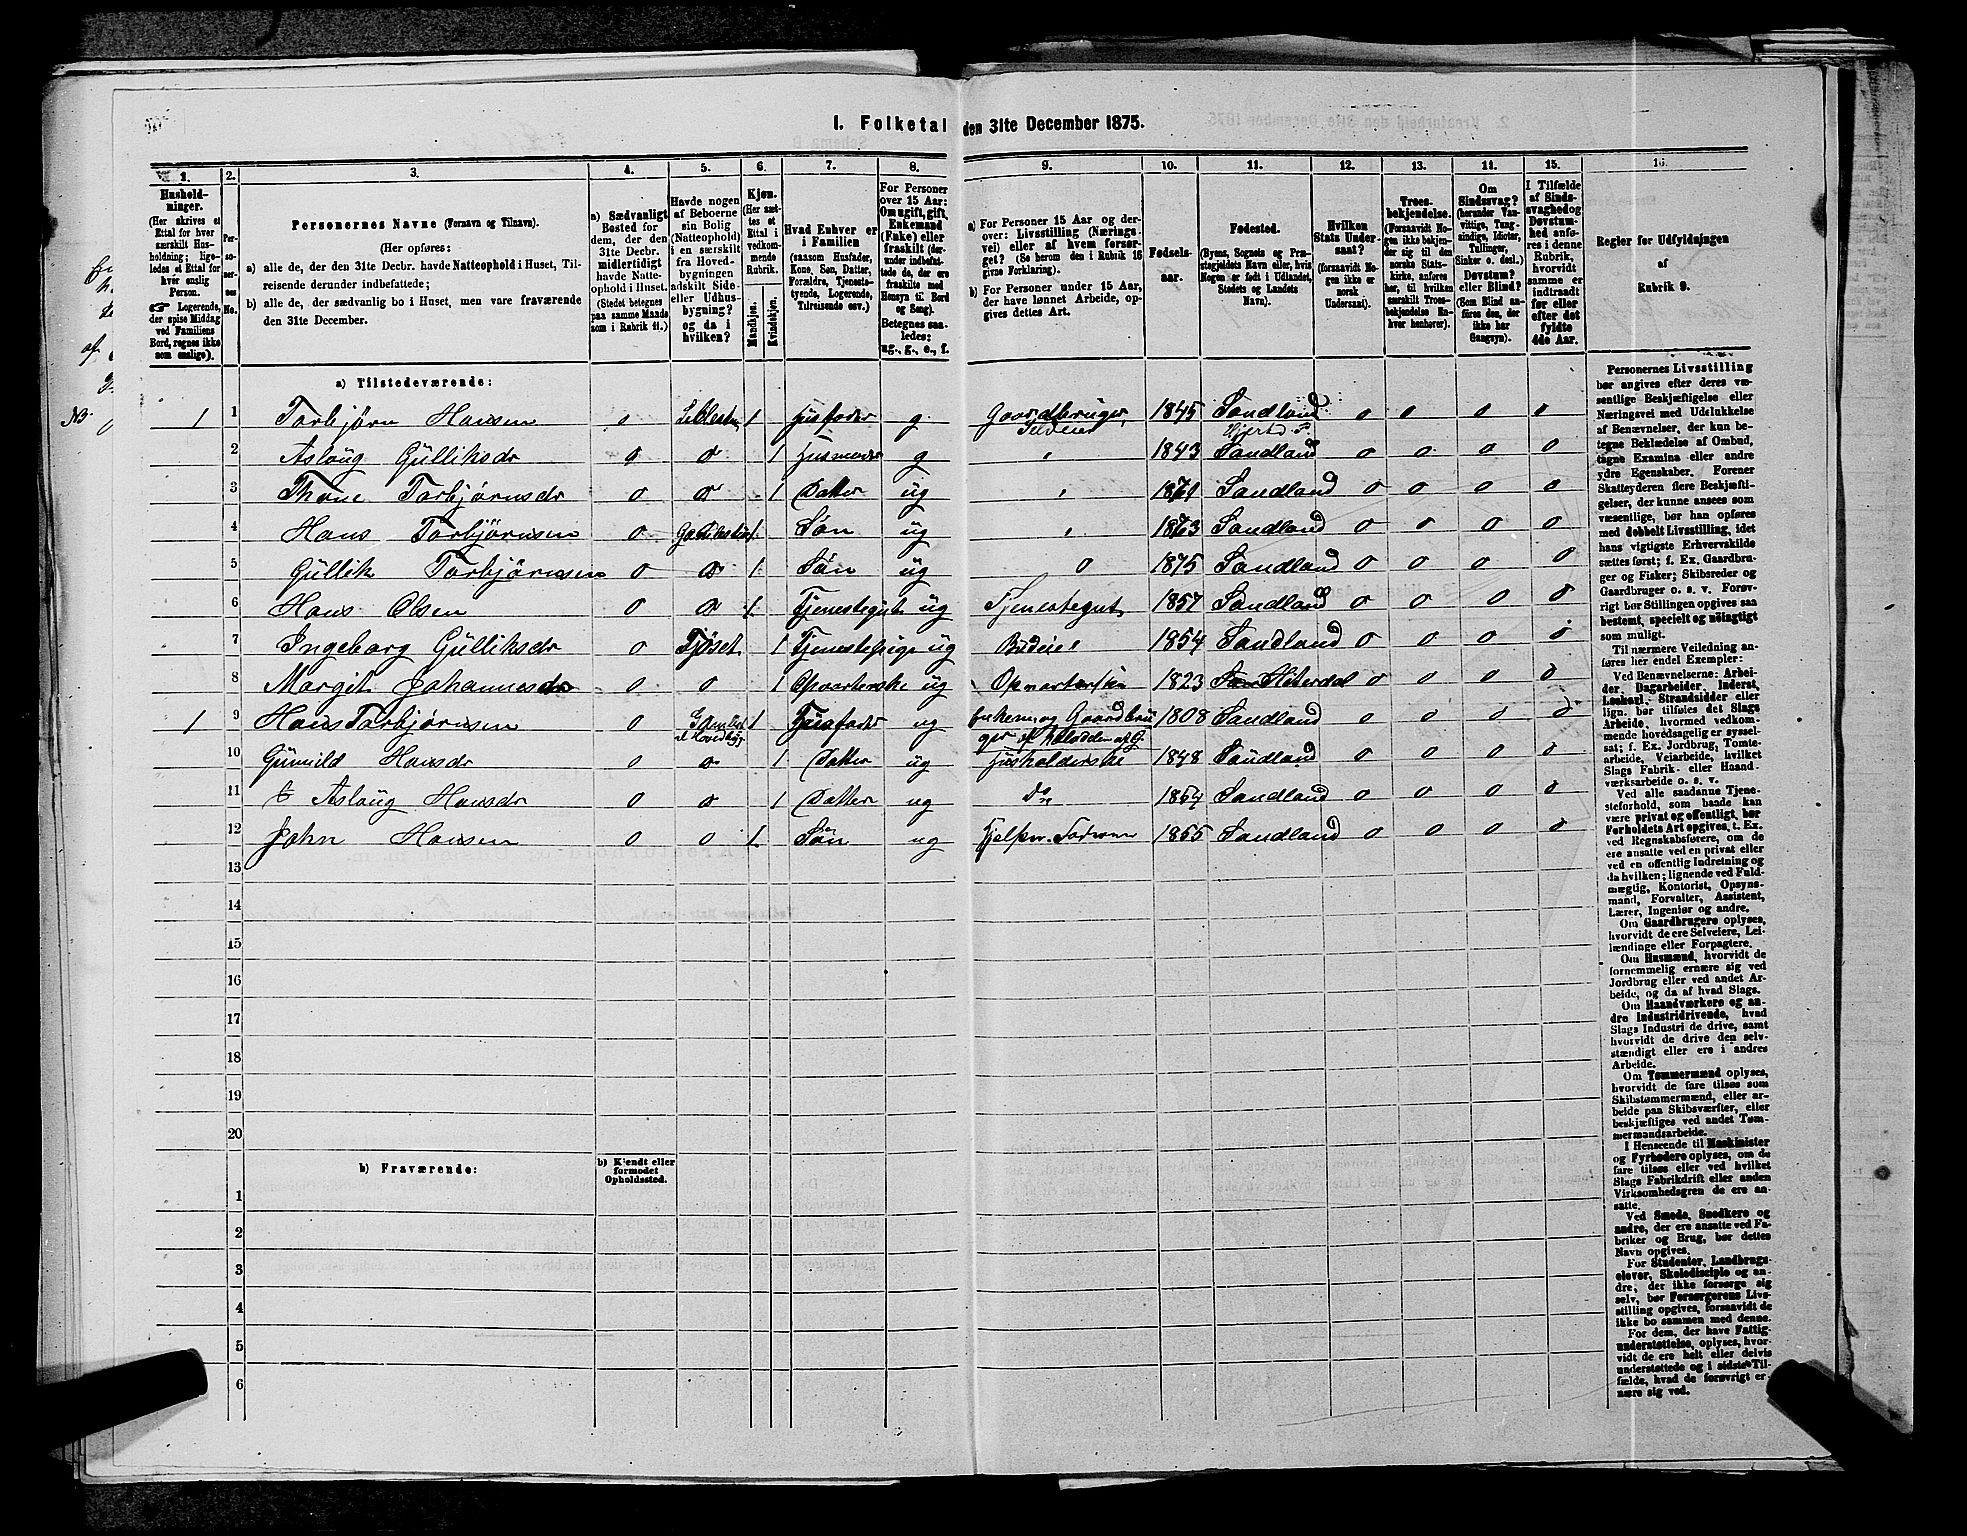 I. Folketal den 31te December 1875.
1. 2. 3. 4. 5. 6. 7. 8. 9. 10. 11. 12. 13. 14. 15. 16.
Hushold-
ninger.
(Her skrives et
Ettal for hver
særskilt Hus-
holdning; lige-
ledes et Ettal for
hver enslig
Person.
Logerende,
der spise Middag
ved Familiens
Bord, regnes ikke
som enslige).
Per-
so-
ner-
nes
No.
Personernes Navne (Fornavn og Tilnavn).
(Her opføres:
a) alle de, der den 31te Decbr. havde Natteophold i Huset, Til-
reisende derunder indbefattede;
b) alle de, der sædvanlig bo i Huset, men vare fraværende
den 31te December.
a) Sædvanligt
Bosted for
dem, der den
31te Decbr.
midlertidigt
havde Natte-
ophold i Huset.
(Stedet betegnes
paa samme Maade
som i Rubrik 11.)
Havde nogen
af Beboerne
sin Bolig
(Natteophold)
i en særskilt
fra Hoved-
bygningen
adskilt Side-
eller Udhus-
bygning?
og da i
hvilken?
Kjøn.
(Her sæt-
tes et
Ettal i
vedkom-
mende
Rubrik.
Mandkjøn.
Kvindekjøn.
Hvad Enhver er
i Familien
(saasom Husfader,
Kone, Søn, Datter,
Forældre, Tjeneste-
tyende, Logerende,
Tilreisende osv.)
For Personer
over 15 Aar:
Om ugift, gift,
Enkemand
(Enke) eller
fraskilt (der-
under indbefat-
tede de, der ere
fraskilte med
Hensyn til Bord
og Seng).
Betegnes saa-
ledes:
ug., g., e., f.
a) For Personer 15 Aar og der-
over: Livsstilling (Nærings-
vei) eller af hvem forsør-
get? (Se herom den i Rubrik 16
givne Forklaring).
b) For Personer under 15 Aar,
der have lønnet Arbeide, op-
gives dettes Art.
Fødsels-
aar.
Fødested.
(Byens, Sognets og Præ-
stegjeldets Navn eller, hvis
Nogen er født i Udlandet,
Stedets og Landets
Navn).
Hvilken
Stats Under-
saat?
(forsaavidt No-
gen ikke er
norsk
Undersaat).
Troes-
bekjendelse.
(Forsaavidt No-
gen ikke bekjen-
der sig til den
norske Stats-
kirke, anføres
her, til hvilken
særskilt Troes-
bekjendelse En-
hver henhører).
Om
Sindssvag?
(herunder Van-
vittige, Tung-
sindige, Idioter,
Tullinger,
Sinker o. desl.).
Døvstum?
eller Blind?
(Som Blind an-
føres den, der
ikke har
Gangsyn).
I Tilfælde
af Sinds-
svaghed og
Døvstum-
hed anfø-
res i denne
Rubrik,
hvorvidt
samme er
indtraadt
før eller
efter det
fyldte
4de Aar.
Regler for Udfyldningen
af
Rubrik 9.
a) Tilstedeværende:
1 1 Torbjørn Hansen o 1 Husfader g Gaardbruger, Selveier 1845 Sandland Hjertd. P. o o o o
2 Aslaug Gulliksdr o o 1 Husmoder g " 1843 Sandland o o o o
3 Thone Torbjørnsdr o o 1 Datter ug " 1871 Sandland o o o o
4 Hans Torbjørnsen o 1 Søn ug " 1873 Sandland o o o o
5 Gullik Torbjørnsen o o 1 Søn ug o 1875 Sandland o o o o
6 Hans Olsen o o 1 Tjenestegut ug Tjenestegut 1857 Sandland o o o o
7 Ingeborg Gulliksdr o Fjøset 1 Tjenestepige ug Budeie 1854 Sandland o o o o
8 Margit Johannesdr o o 1 Opvarterske ug Opvarterske 1823 Hiterdal o o o o
1 9 Hans Torbjørnsen o 1 Husfader ug Enkem. og Gaardbru 1808 Sandland o o o o
10 Gunild Hansdr o o 1 Datter ug Husholderske 1848 Sandland o o o o
11 Aslaug Hansdr o o 1 Datter ug Do 1854 Sandland o o o o
12 John Hansen o o 1 Søn ug Hjelper Faderen 1855 Sandland o o o o
13
14
15
16
17
18
19
20
b) Fraværende:
b) Kjendt eller
formodet
Opholdssted.
1
2
3
4
5
6
Personernes Livsstilling
bør angives efter deres væ-
sentlige Beskjæftigelse eller
Næringsvei med Udelukkelse
af Benævnelser, der kun be-
tegne Beklædelse af Ombud,
tagne Examina eller andre
ydre Egenskaber. Forener
Skatteyderen flere Beskjæfti-
gelser, der kunne ansees som
væsentlige, bør han opføres
med dobbelt Livsstilling, idet
hans vigtigste Erhvervskilde
sættes først; f. Ex. Gaardbru-
ger og Fisker; Skibsreder og
Gaardbruger o. s. v. Forøv-
rigt bør Stillingen opgives saa
bestemt, specielt og nöiagtigt
som muligt.
Til nærmere Veiledning an-
føres her endel Exempler:
Ved Benævnelserne: Arbei-
der, Dagarbeider, Inderst,
Løskarl, Strandsidder eller
lign. bør tilføies det Slags
Arbeide, hvormed vedkom-
mende hovedsagelig er syssel-
sat; f. Ex. Jordbrug, Tomte-
arbeide, Veiarbeide, hvilket
Slags Fabrik- eller Haand-
værksarbeide o. s. v.
Ved alle saadanne Tjene-
steforhold, som baade kan
være privat og offentligt, bør
Forholdets Art opgives, f. Ex.
ved Regnskabsførere, om de
ere ansatte ved en privat eller
ved en offentlig Indretning og
da hvilken; lignende ved Fuld-
mægtig, Kontorist, Opsyns-
mand, Forvalter, Assistent,
Lærer, Ingeniør og andre.
Om Gaardbrugere oplyses,
hvorvidt de ere Selveiere, Lei-
lændinge eller Forpagtere.
Om Husmænd, hvorvidt de
fornemmelig ernære sig ved
Jordbrug eller ved andet Ar-
beide, og da af hvad Slags.
Om Haandværkere og an-
dre Industridrivende, hvad
Slags Industri de drive, samt
hvorvidt de drive den selv-
stændigt eller ere i andres
Arbeide.
Om Tømmermænd oplyses,
hvorvidt de fare tilsøs som
Skibstømmermænd, eller ar-
beide paa Skibsværfter, eller
beskjæftiges ved andet Tøm-
mermandsarbeide.
I Henseende til Maskinister
og Fyrbødere oplyses, om de
fare tilsøs eller ved hvilket
Slags Fabrikdrift eller anden
Virksomhedsgren de ere an-
satte.
Ved Smede, Snedkere og
andre, der ere ansatte ved Fa-
briker og Brug, bør dettes
Navn opgives.
For Studenter, Landbrugs-
elever, Skoledisciple og an-
dre, der ikke forsørge sig
selv, bør Forsørgerens Livs-
stilling opgives, forsaavidt de
ikke bo sammen med denne.
For dem, der have Fattig-
understøttelse, oplyses, hvor-
vidt de ere helt eller delvis
understøttede og i sidste Til-
fælde, hvad de forøvrigt er-
nære sig ved.